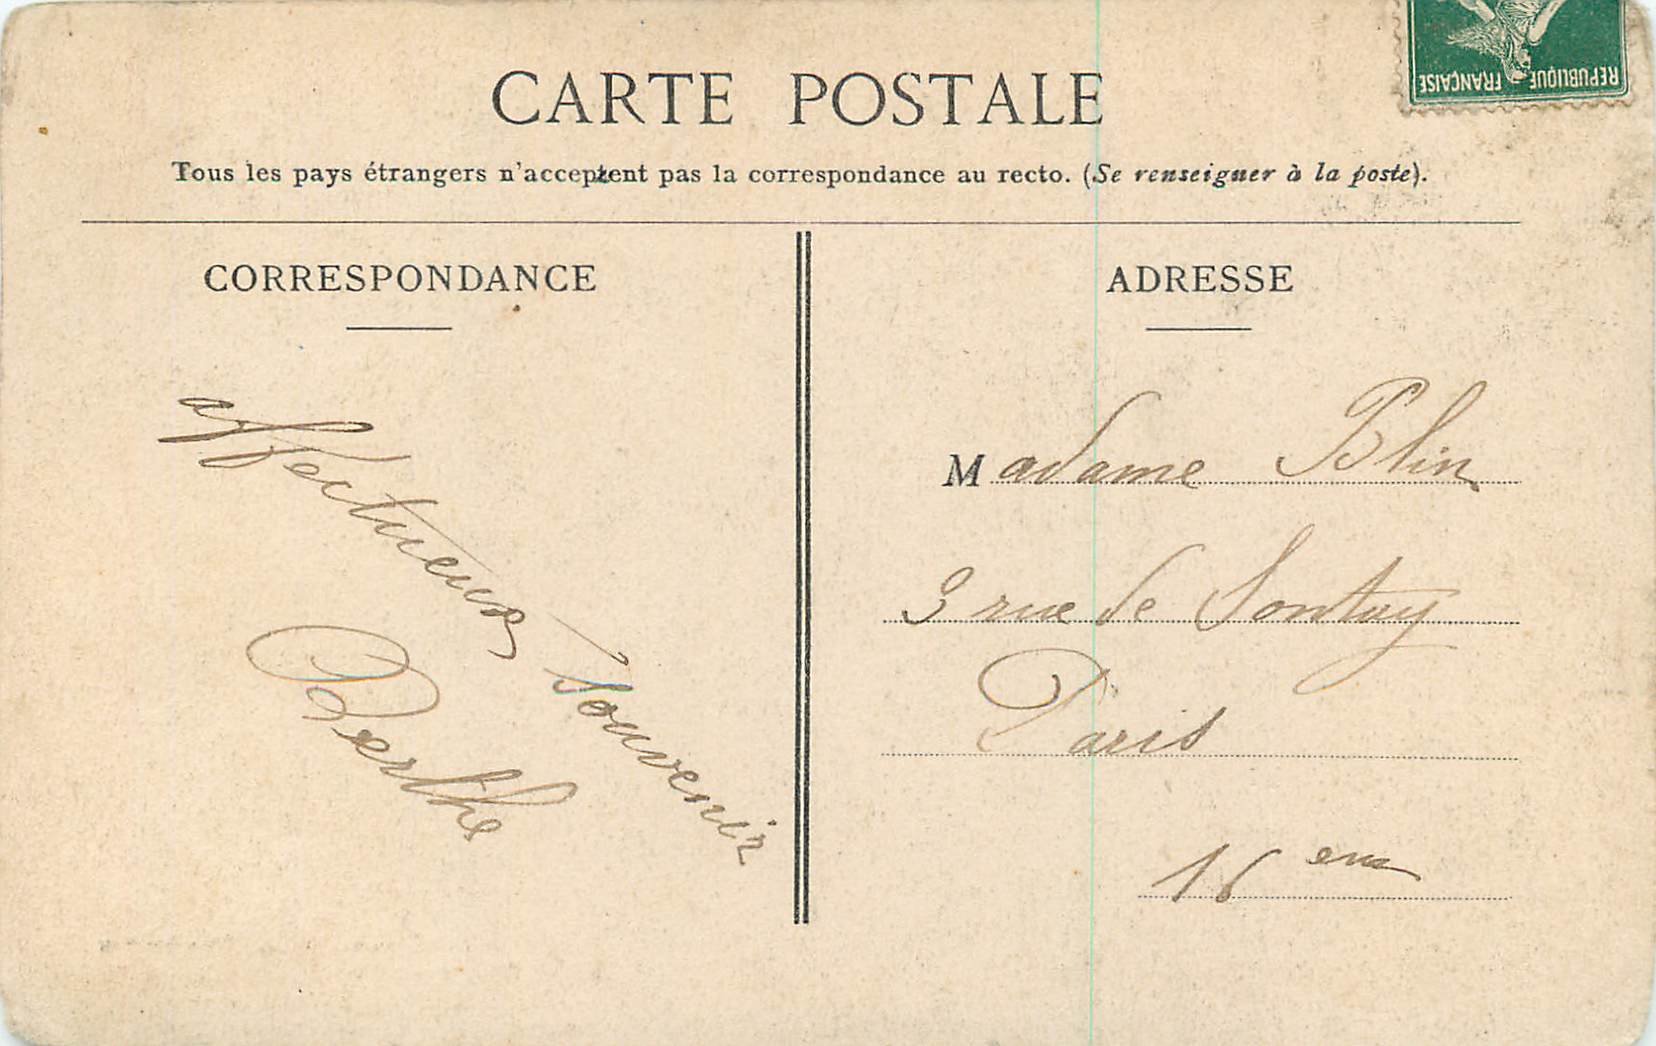 REPUBLIQUE FRANÇAISE
CARTE POSTALE
Tous les pays étrangers n'acceptent pas la correspondance au recto. (Se renseigner à la poste).
CORRESPONDANCE
affectueux souvenir
Berthe
ADRESSE
Madame Blin
3 rue de Sontay
Paris
16 eme